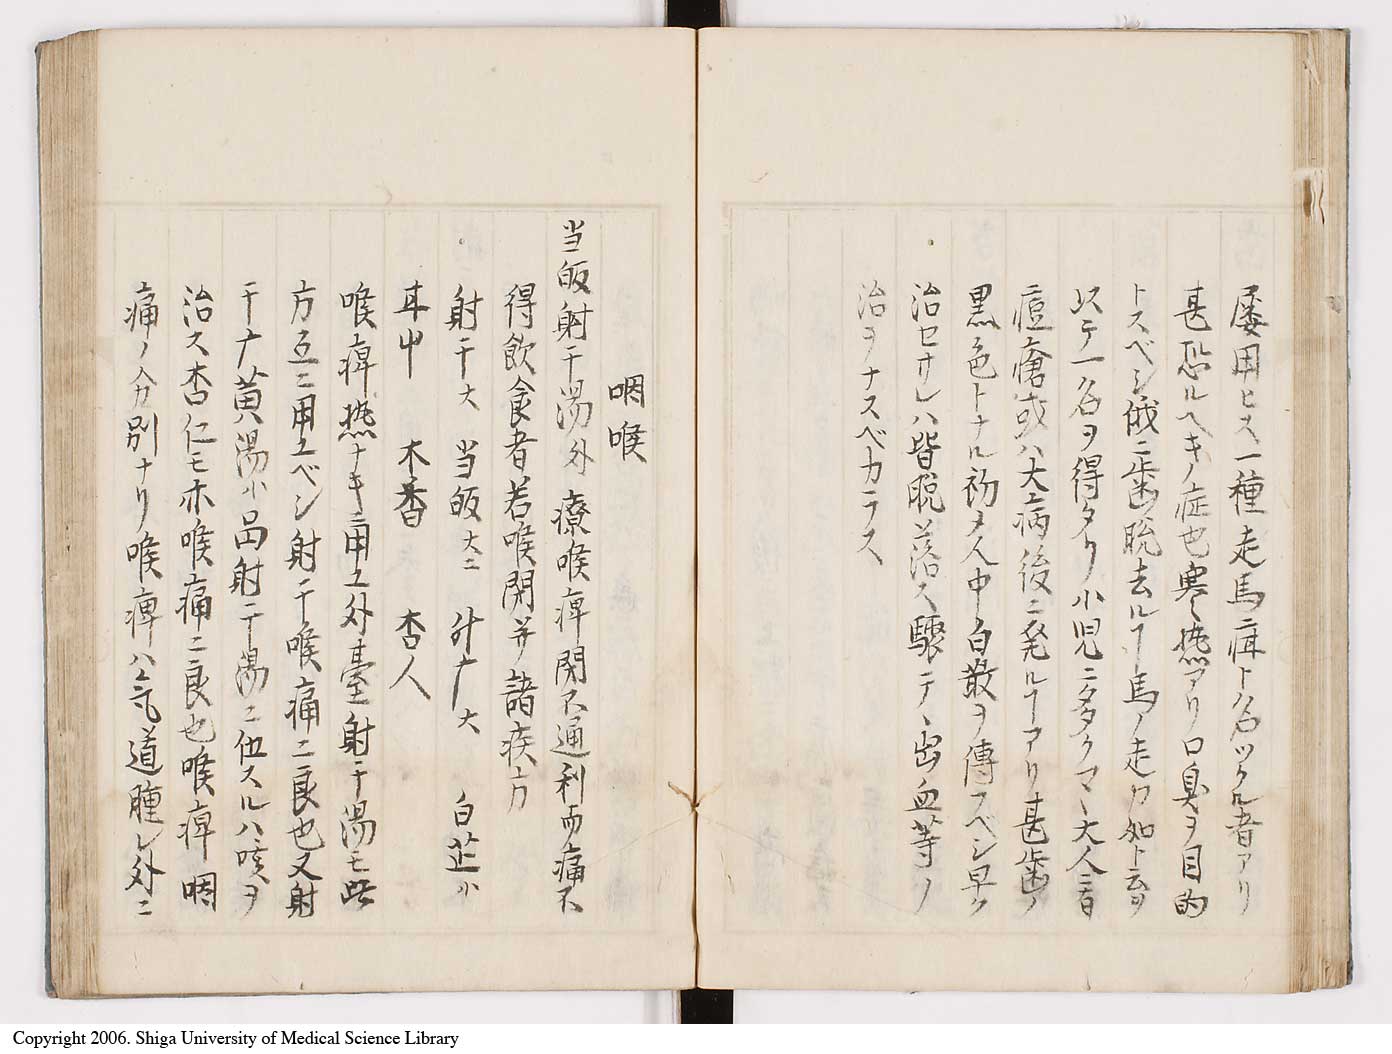 屡用ヒス一種走馬疳ト名ツクル者アリ
甚恐ルヘキノ症也寒熱アリ口臭ヲ目的
トスベシ俄ニ歯脱去ルヿ馬ノ走カ如ト云ヲ
以テ一名ヲ得タリ小児ニ多クマヽ大人ニ有
痘瘡或ハ大病後ニ発ルヿアリ甚歯ノ
黒色トナル初メ人中白散ヲ傳スベシ早ク
治セサレハ皆脱落ス驟テ出血等ノ
治ヲナスベカラス
咽喉
当皈射干湯外 療喉痺閉不通利而痛不
得飲食者若喉閉并諸疾方
射干大 当皈大ニ 升广大 白芷小
耳屮 木香 杏人
喉痺熱ナキニ用ユ外臺射干湯モ此
方互ニ用ユベシ射干喉痛ニ良也又射
干广黄湯小品射干湯ニ伍スルハ咳ヲ
治ス杏仁モ亦喉痛ニ良也喉痺咽
痛ノ分別ナリ喉痺ハ气道腫レ外ニ
Copyright 2006. Shiga University of Medical Science Library